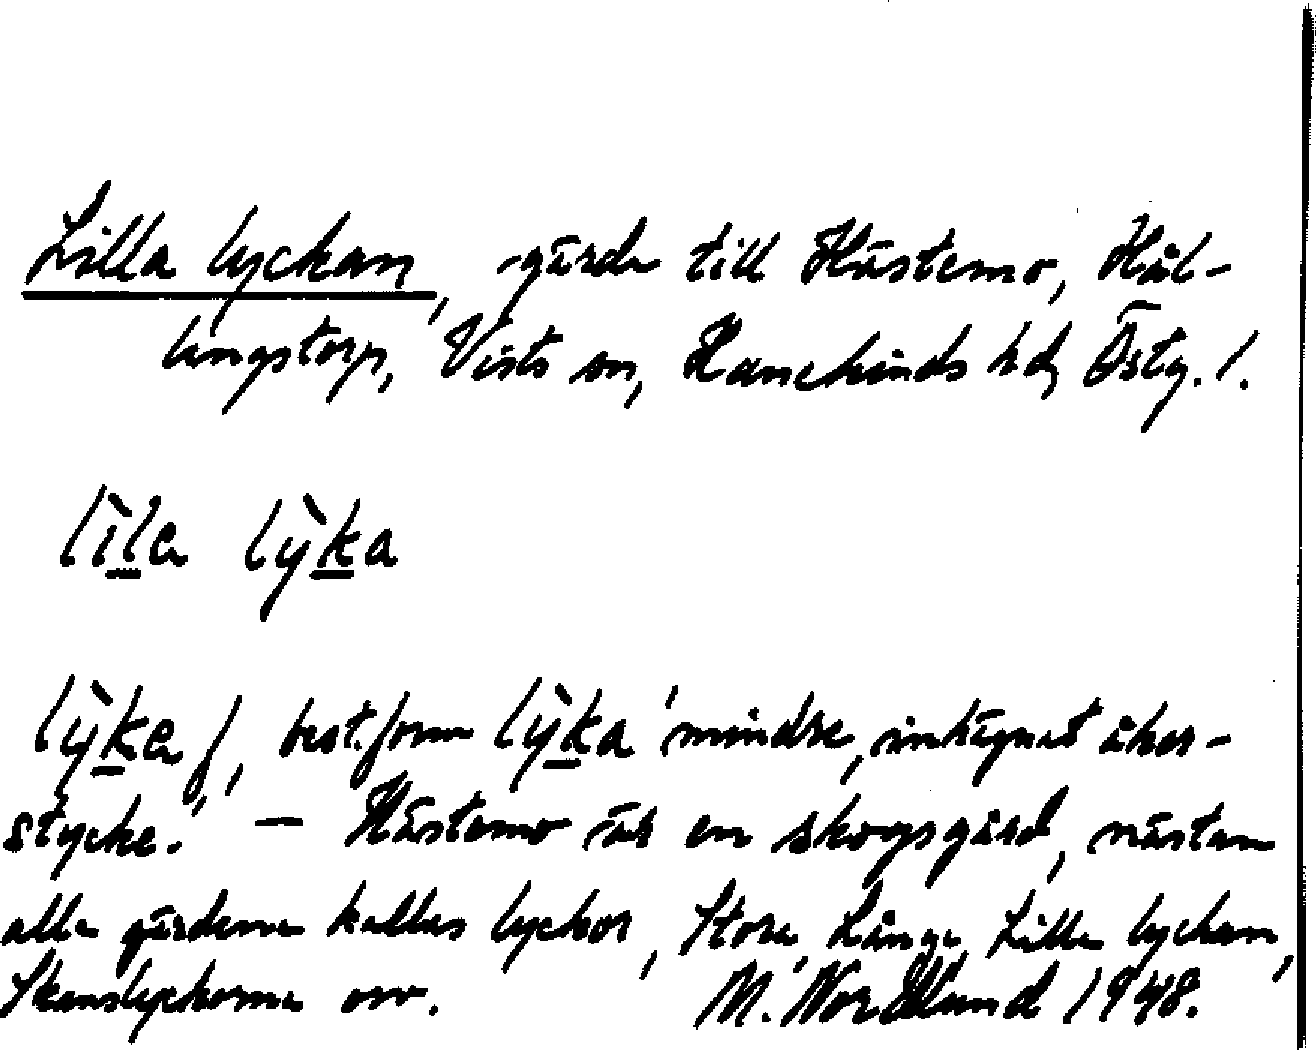 Lilla lyckan, gärde till Hästemo, Häl-
lingstorp, Vists sn, Hanekinds hd, Östg. l.
lìla lỳka
lỳka f, best. form lỳka 'mindre, inhägnat åker-
stycke.' — Hästemo är en skogsgård, nästan
alla gärdena kallas lyckor, Stora, Långa, Lilla lyckan,
lyckorna osv. M. Nordlund 1948.